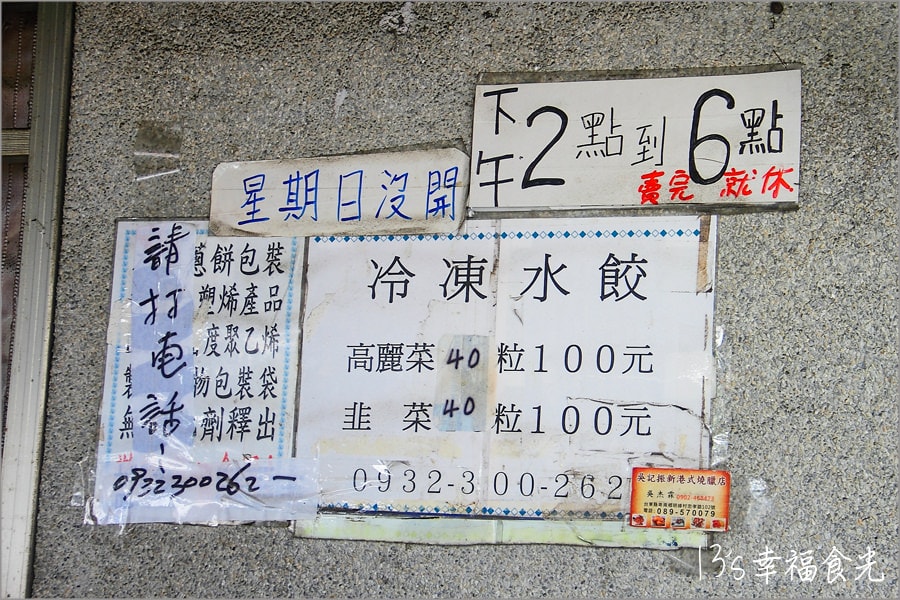 下午2點到6點
賣完 就休
星期日沒開
請打電話
0932300262
蔥餅包裝
塑烯產品
度聚乙烯
製 物包裝袋
無 劑釋出
冷凍水餃
高麗菜 40 粒 100元
韭菜 40 粒 100元
0932-300-262
吳記振新港式燒臘店
吳杰霖
電話:089-570079
13's幸福食光